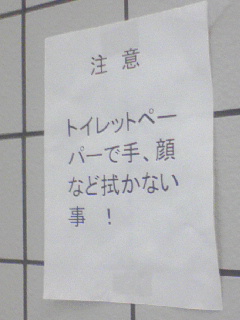 注　意
トイレットペー
パーで手、顔
など拭かない
事　！